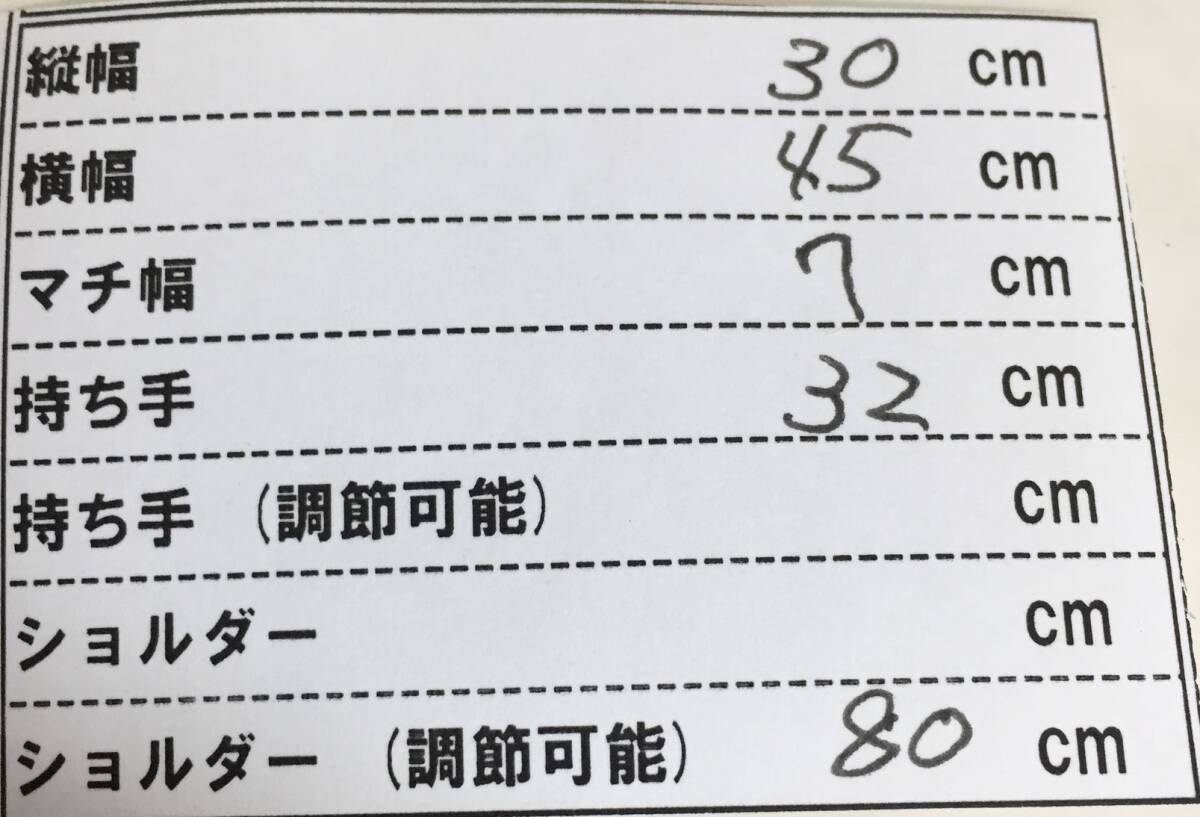 縦幅 30 cm
横幅 45 cm
マチ幅 7 cm
持ち手 32 cm
持ち手 (調節可能) cm
ショルダー cm
ショルダー (調節可能) 80 cm